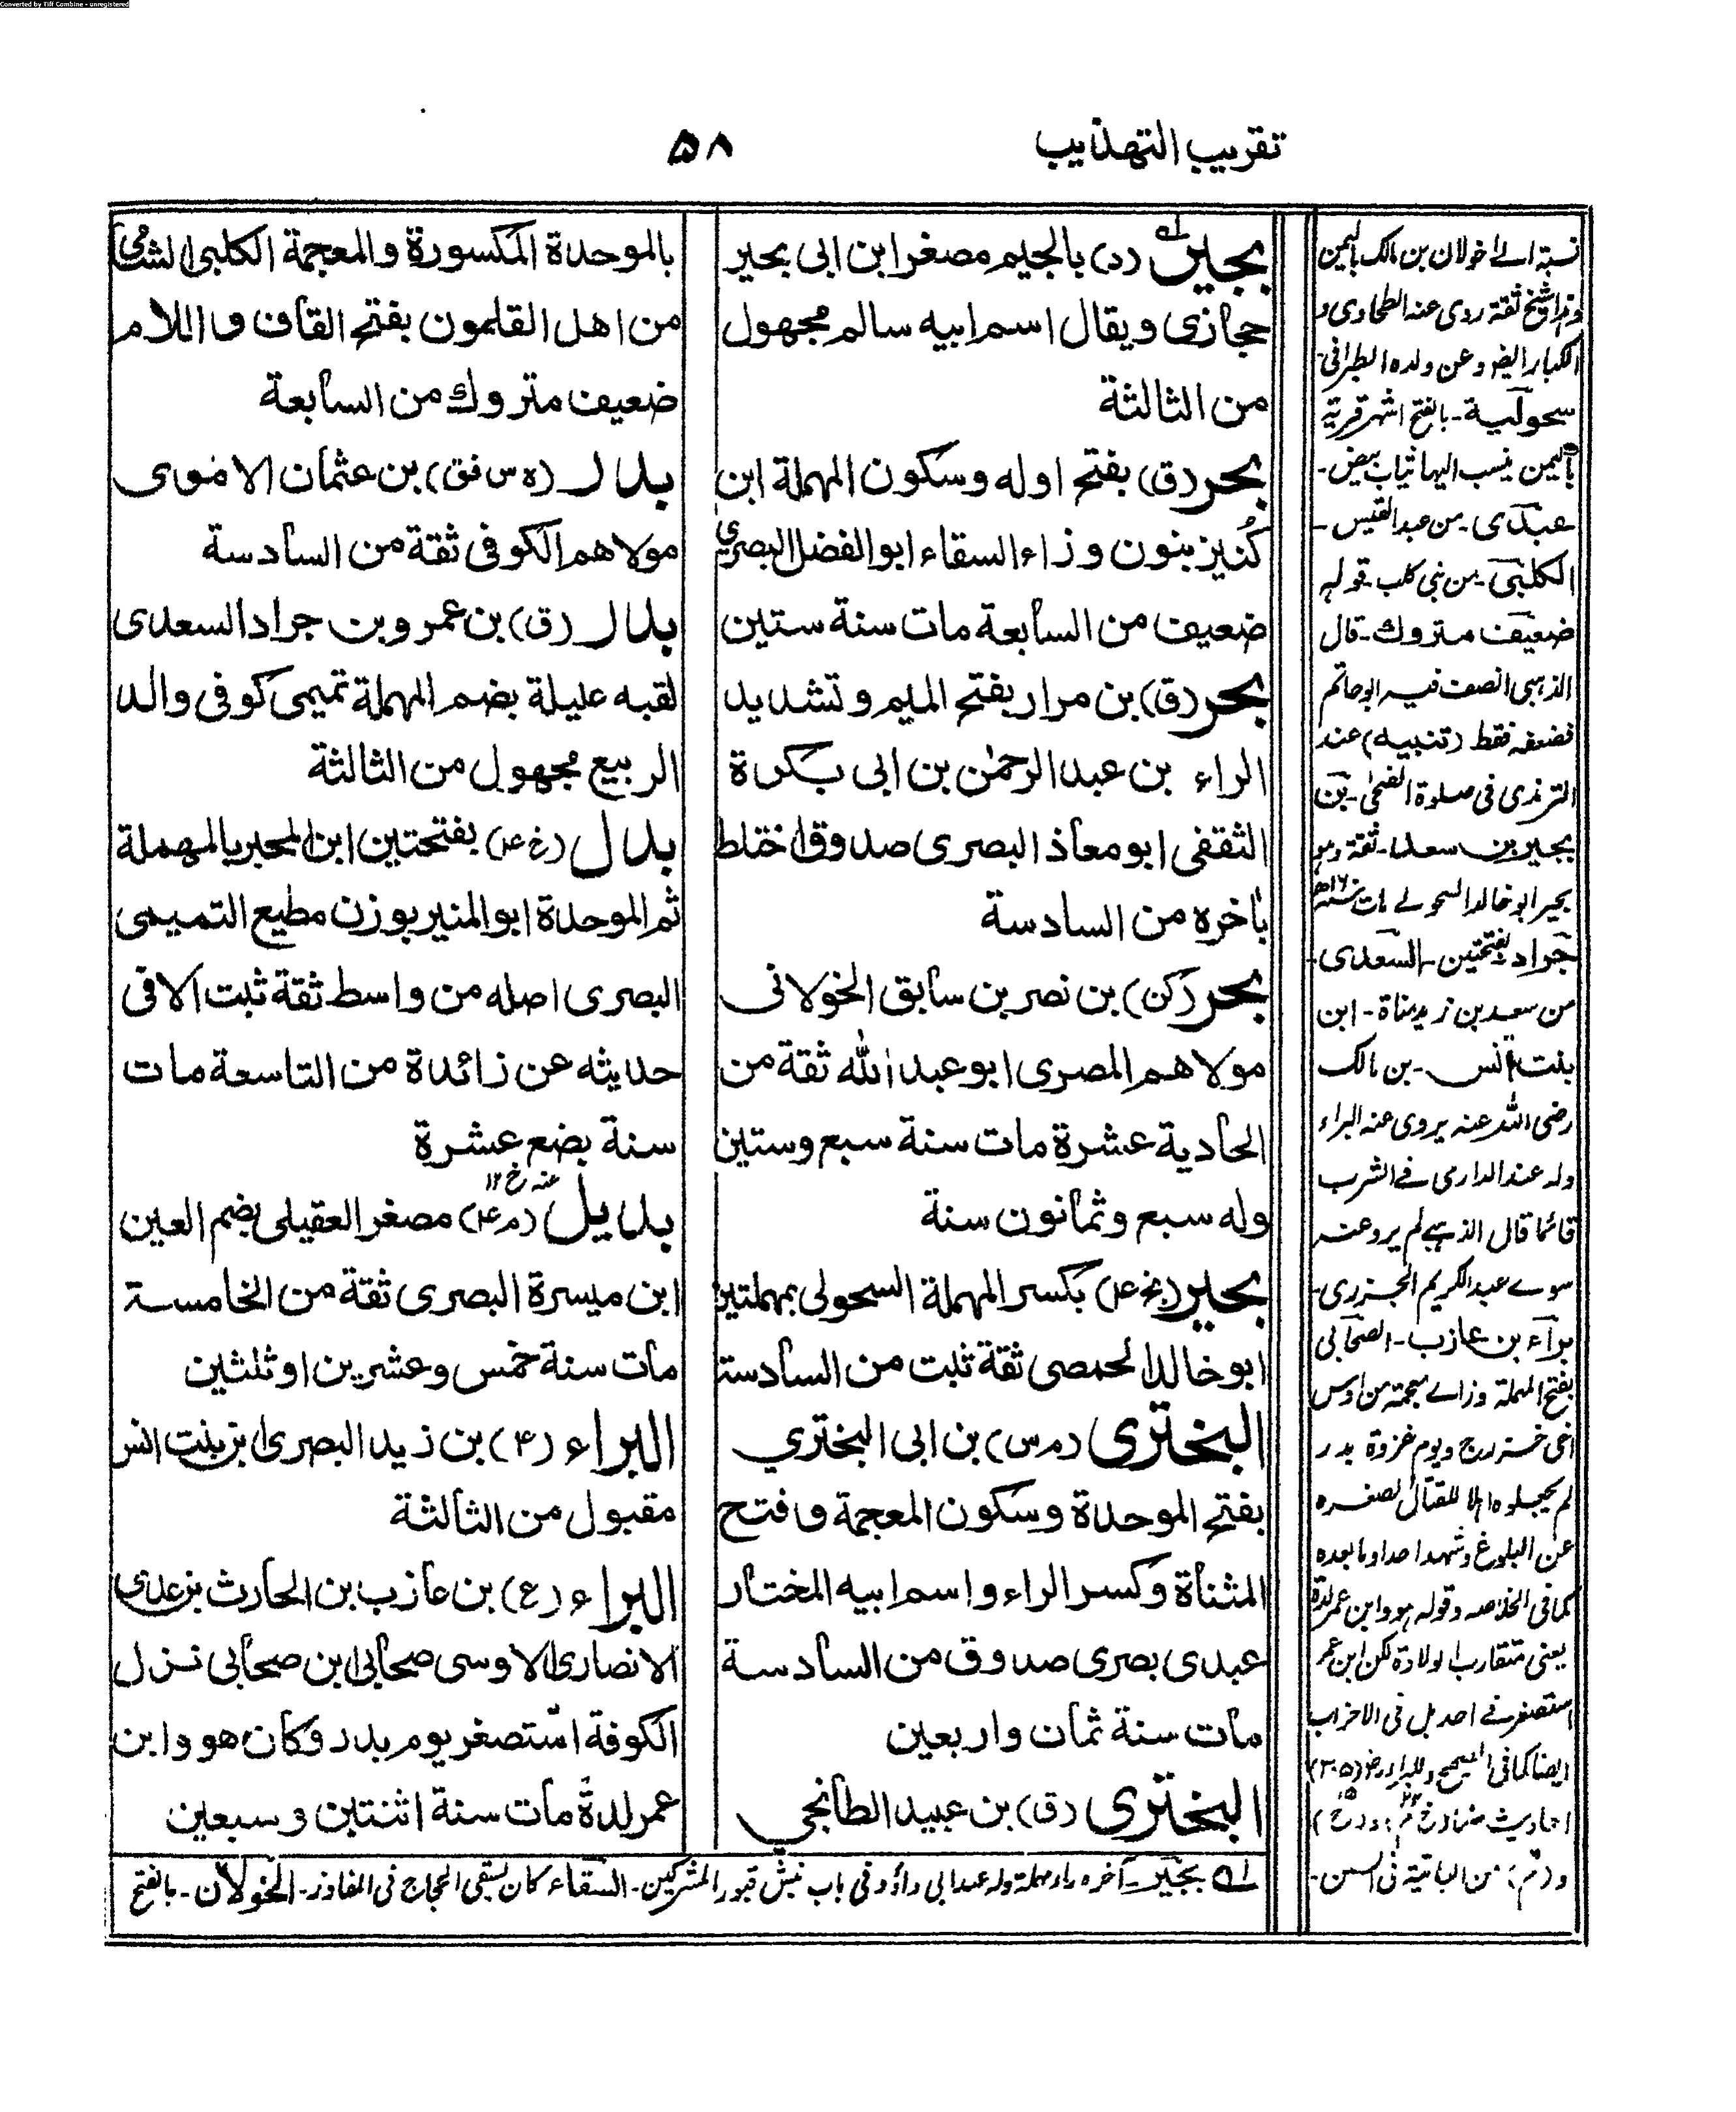 Converted by Tiff Combine - unregistered
تقريب التهذيب
۵۸
بجير (د) بالجيم مصغرا بن ابى بجير
حجازى ويقال اسم ابيه سالم مجهول
من الثالثة
بحر (ق) بفتح اوله وسكون المهملة ابن
كُنيز بنون وزاء السقاء ابو الفضل البصري
ضعيف من السابعة مات سنة ستين
بحر (ق) بن مرار بفتح الميم وتشديد
الراء بن عبد الرحمٰن بن ابى بكرة
الثقفى ابو معاذ البصرى صدوق اختلط
باخره من السادسة
بحر (كن) بن نصر بن سابق الخولانى
مولاهم المصرى ابو عبد الله ثقة من
الحادية عشرة مات سنة سبع وستين
وله سبع وثمانون سنة
بحير (بخ ۴) بكسر المهملة السحولى بمهملتين
ابو خالد الحمصى ثقة ثبت من السادسة
البخترى (م س) بن ابى البختري
بفتح الموحدة وسكون المعجمة وفتح
المثناة وكسر الراء واسم ابيه المختار
عبدى بصرى صدوق من السادسة
مات سنة ثمان واربعين
البخترى (ق) بن عبيد الطابخي
بالموحدة المكسورة والمعجمة الكلبى الشامى
من اهل القلمون بفتح القاف واللام
ضعيف متروك من السابعة
بدر (ه س فق) بن عثمان الاموى
مولاهم الكوفى ثقة من السادسة
بدر (ق) بن عمرو بن جراد السعدى
لقبه عليلة بضم المهملة تميمى كوفى والد
الربيع مجهول من الثالثة
بدل (خ ۴) بفتحتين ابن المحبر بالمهملة
ثم الموحدة ابو المنير بوزن مطيع التميمى
البصرى اصله من واسط ثقة ثبت الا فى
حديثه عن زائدة من التاسعة مات
سنة بضع عشرة
بديل (م ۴) مصغر العقيلى بضم العين
ابن ميسرة البصرى ثقة من الخامسة
مات سنة خمس وعشرين او ثلثين
البراء (۴) بن زيد البصرى ابن بنت انس
مقبول من الثالثة
البراء (ع) بن عازب بن الحارث بن عدى
الانصارى الاوسى صحابى ابن صحابى نزل
الكوفة استصغر يوم بدر وكان هو وابن
عمر لدة مات سنة اثنتين وسبعين
بجير آخره راء مهملة وله عند ابى داؤد فى باب نبش قبور المشركين - السقاء كان يسقى الحجاج فى المفاوز - الخولان - بالفتح
نسبة الى خولان بن مالك باليمن
شيخ ثقة روى عنه الطحاوى و
الكبار ايض وعن ولده الطبرانى
سحولية - بالفتح اشهر قرية
باليمن ينسب اليها ثياب بيض -
عبدى - من عبد القيس -
الكلبى - من بنى كلب - قوله
ضعيف متروك - قال
الذهبى انصف فيه ابو حاتم
فضعفه فقط (تنبيه) عند
الترمذى فى صلوة الضحى - بن
بجير بن سعد - ثقة وهو
بحير ابو خالد السحولى مات
جراد بفتحتين - السعدى -
من سعد بن زيد مناة - ابن
بنت انس - بن مالك
رضى الله عنه يروى عنه البراء
وله عند الدارمى فى الشرب
قائما قال الذهبى لم يرو عنه
سوى عبد الكريم الجزرى -
براء بن عازب - الصحابى
بفتح المهملة وزاء معجمة من اوس
اخى خزرج ويوم غزوة بدر
لم يجعلوه اهلا للقتال لصغره
عن البلوغ وشهد احدا وما بعده
كما فى الخلاصه وقوله هو وابن عمر لدة
يعنى متقارب الولادة لكن ابن عمر
استصغر فى احد بل فى الاحزاب
ايضا كما فى الصحيح وللبراء رض (٣٠٥)
احاديث
من الباقية فى السنن -